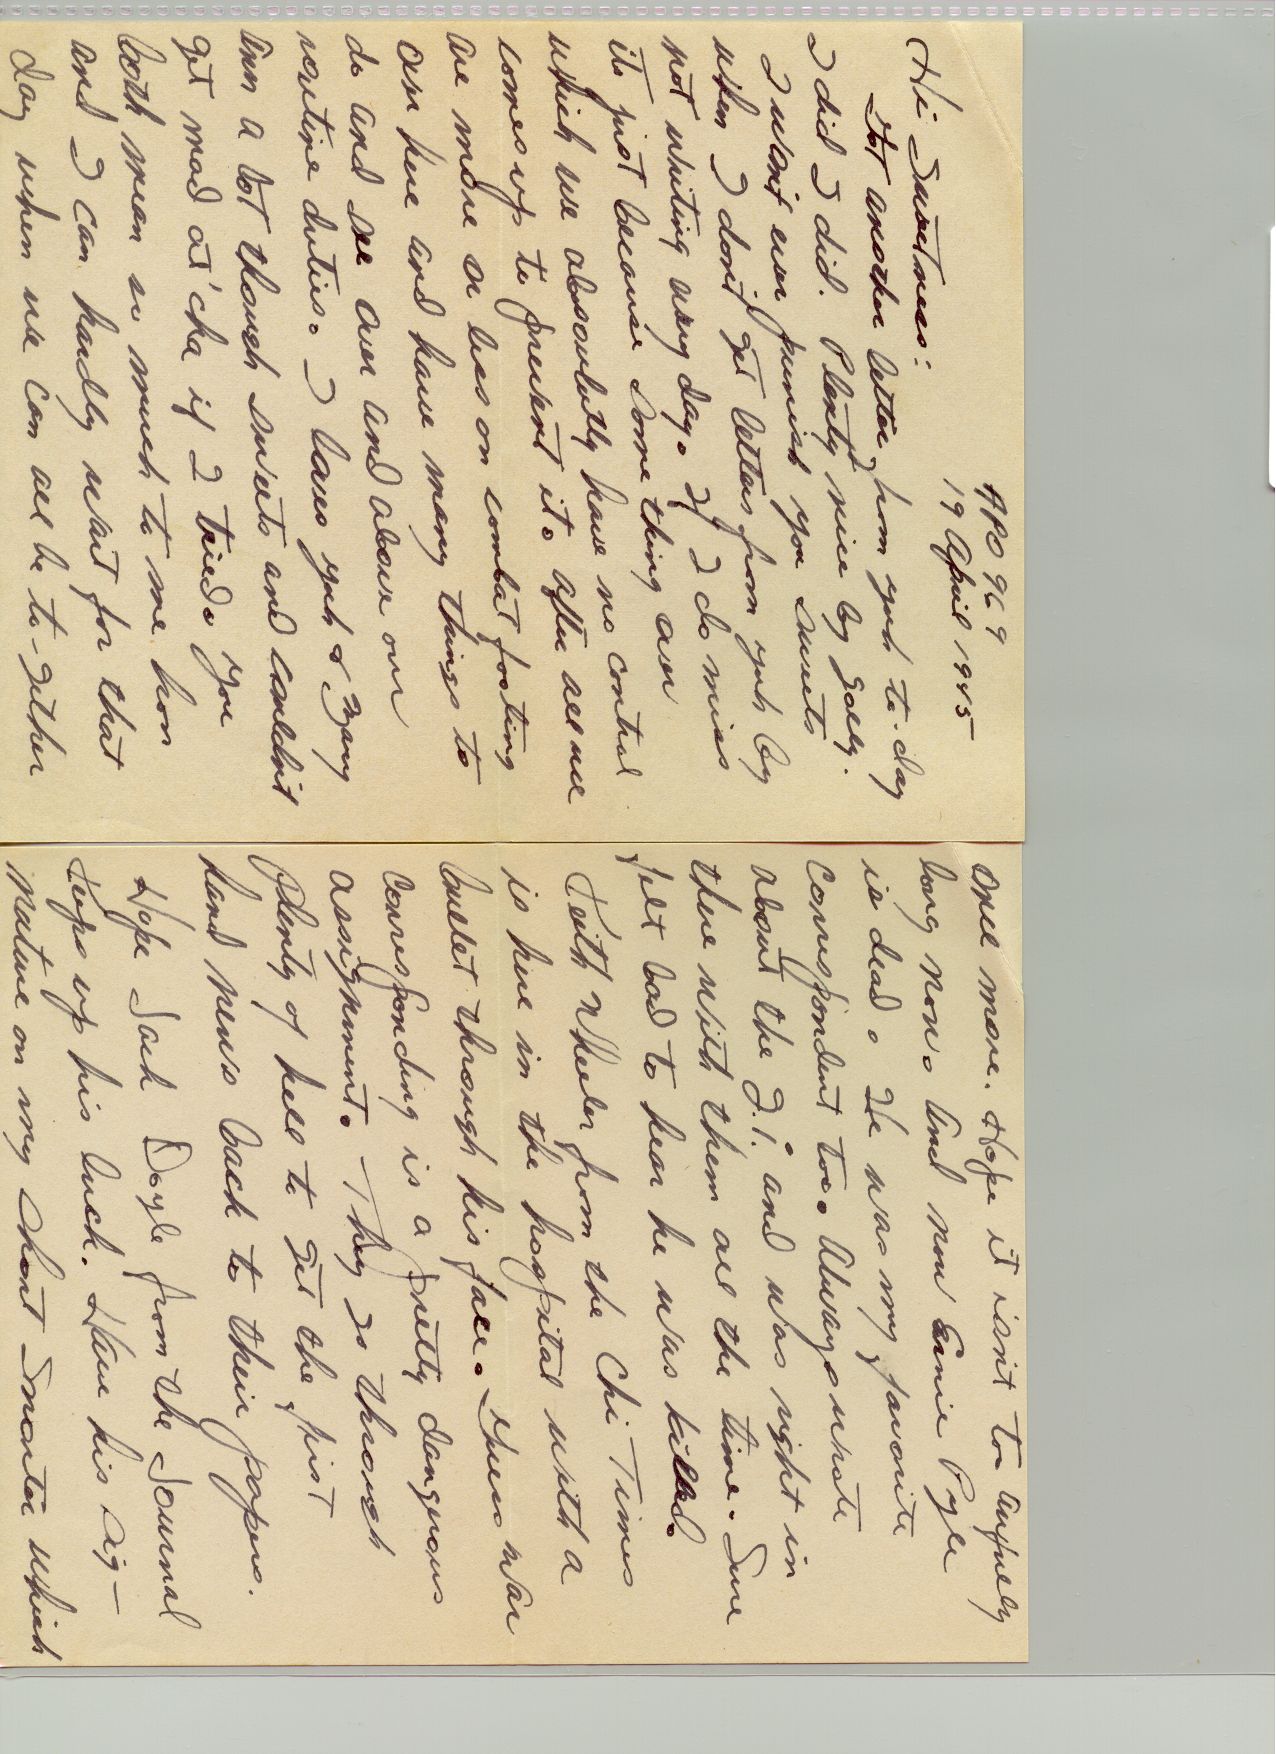 APO 969
19 April 1945
Hi Sweetness:
Got another letter from yuh to-day
I did I did. Plenty nice by golly.
I won't ever punish you sweets
when I don't get letters from yuh by
not writing any day. If I do miss
its just because some thing over
which we absoulutly have no control
comes up to prevent it. After all we
are more or less on combat footing
over here and have many things to
do and see over and above our
routine duties. I loves yuh &
Ann a lot though sweets and couldn't
get mad at'cha if I tried. You
both mean so much to me hon
and I can hardly wait for that
day when we can all be to-gether
once more. Hope it isn't to awfully
long now. And now Ernie Pyle
is dead. He was my favorite
correspondent too. Always wrote
about the G.I. and was right in
there with them all the time. Sure
felt bad to hear he was killed.
Keith Wheeler from the Chi Times
is here in the hospital with a
bullet through his face. Guess war
corresponding is a pretty dangerous
assignment. They go through
plenty of hell to get the first
hand news back to their papers.
Hope Jack Doyle from the Journal
keeps up his luck. Have his sig-
nature on my short snorter which